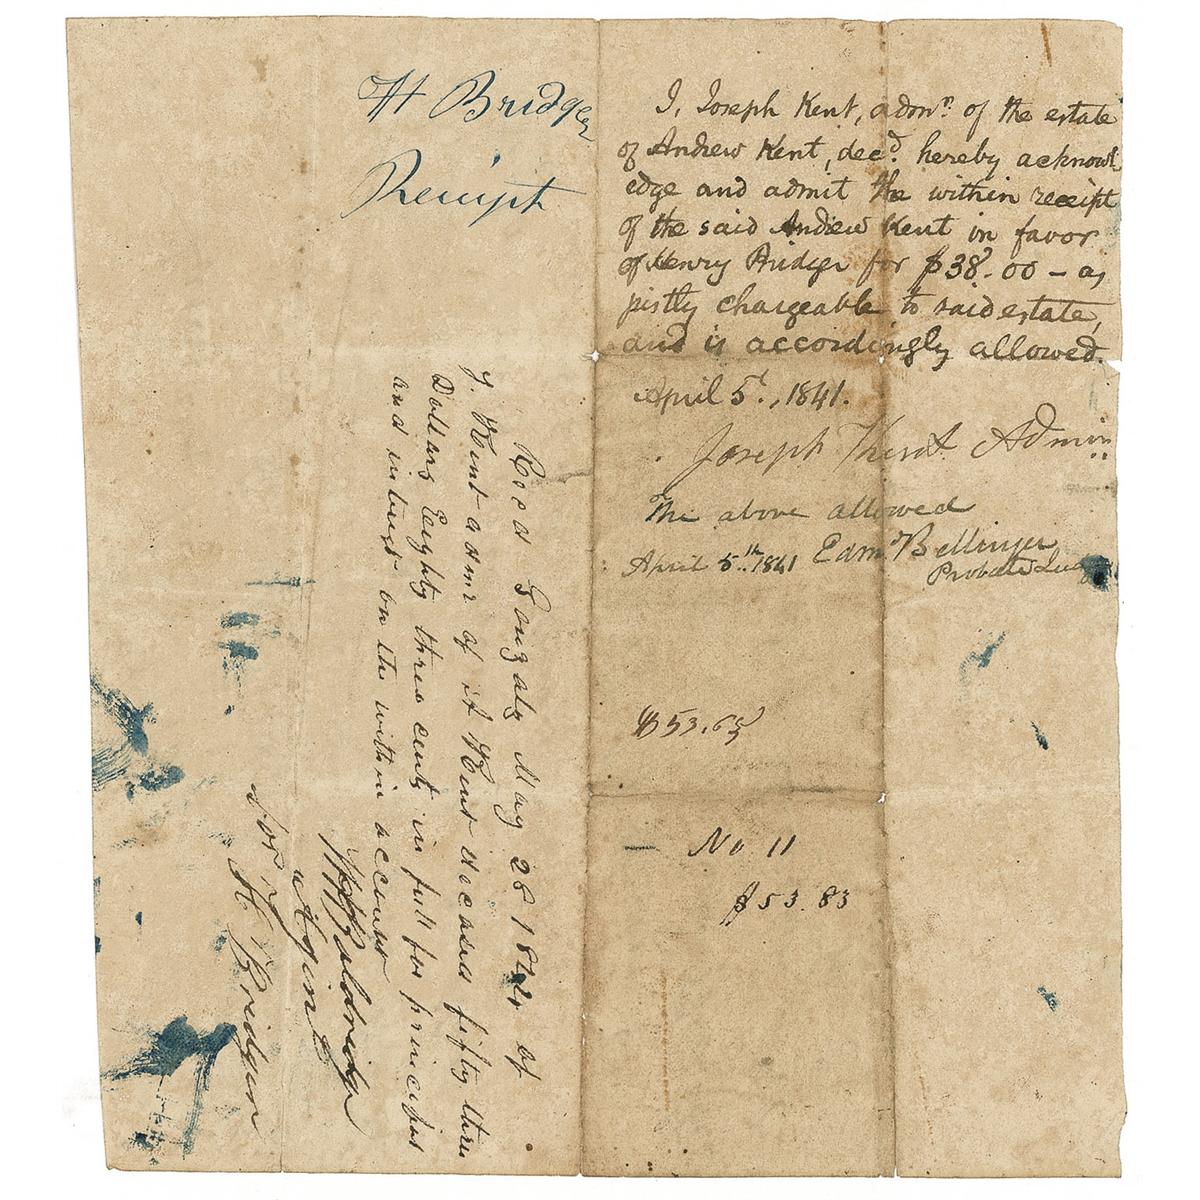 H Bridger
Receipt
I, Joseph Kent, admr. of the estate
of Andrew Kent, decd. hereby acknowl
edge and admit the within receipt
of the said Andrew Kent in favor
of Henry Bridger for $38.00 - as
justly chargeable to said estate,
and is accordingly allowed.
April 5t., 1841.
Joseph Kent Admin
The above allowed
April 5th. 1841 Edm. Bellinger
Probate Judge
$53.63
No 11
$53.83
Recd Gonzales May 28 1842 of
J. Kent admr of A Kent deceased fifty three
Dollars Eighty three cents in full for principal
and intrest on the within account
Baldridge
Agint
for H. Bridger